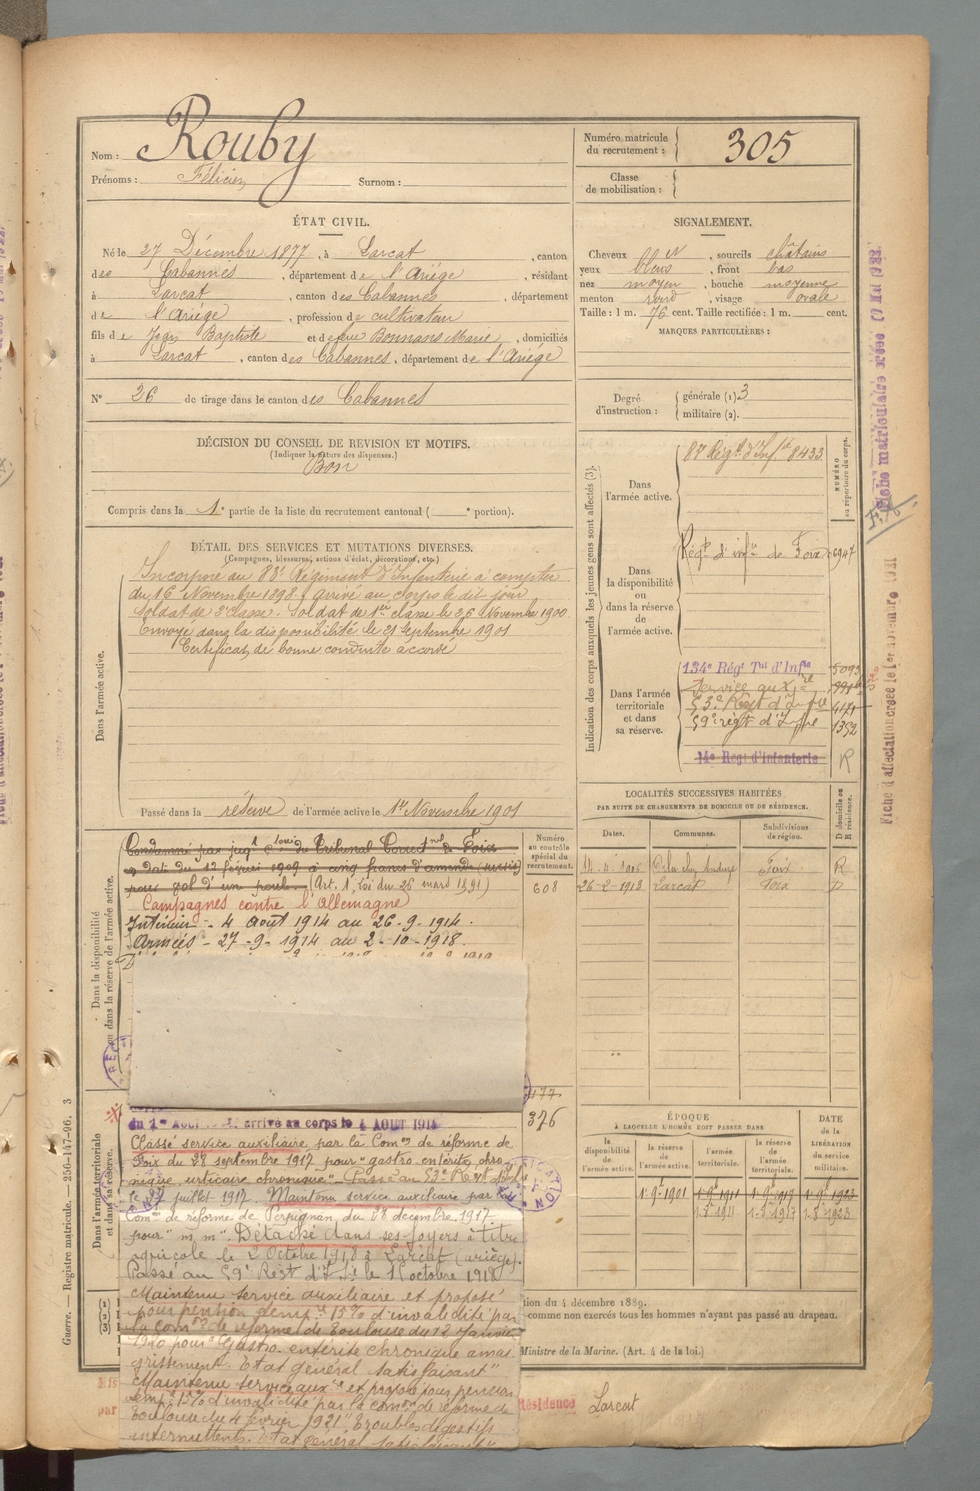 Nom : Rouby
Prénoms : Félicien Surnom :
Numéro matricule du recrutement : 305
Classe de mobilisation :
ÉTAT CIVIL.
Né le 27 Décembre 1877, à Larcat, canton
des Cabannes, département de l'Ariége, résidant
à Larcat, canton des Cabannes, département
de l'Ariége, profession de cultivateur
fils de Jean Baptiste et de feue Bonnans Marie, domiciliés
à Larcat, canton des Cabannes, département de l'Ariége
N° 26 de tirage dans le canton des Cabannes
SIGNALEMENT.
Cheveux, sourcils châtains
yeux bleus, front bas
nez moyen, bouche moyenne
menton rond, visage ovale
Taille : 1 m. 76 cent. Taille rectifiée : 1 m. cent.
MARQUES PARTICULIÈRES :
Degré d'instruction : générale (1) 3
militaire (2).
DÉCISION DU CONSEIL DE REVISION ET MOTIFS.
(Indiquer la nature des dispenses.)
Bon
Compris dans la 1e partie de la liste du recrutement cantonal ( e portion).
DÉTAIL DES SERVICES ET MUTATIONS DIVERSES.
(Campagnes, blessures, actions d'éclat, décorations, etc.)
Dans l'armée active.
Incorporé au 83e Régiment d'Infanterie à compter
du 16 Novembre 1898. arrivé au corps le dit jour
Soldat de 2e classe. Soldat de 1ere classe le 26 Novembre 1900
Envoyé dans la disponibilité le 21 Septembre 1901
Certificat de bonne conduite accordé
Passé dans la réserve de l'armée active le 1er Novembre 1901
Indication des corps auxquels les jeunes gens sont affectés (3).
NUMÉRO au répertoire du corps.
Dans l'armée active.
Régt d'Infie 8433
Dans la disponibilité ou dans la réserve de l'armée active.
Régt d'infie de Foix 6947
Dans l'armée territoriale et dans sa réserve.
134e Régt Tal d'Infie
53e Régt d'Infie 4171
59e régt d'Infie 1352
14e Régt d'Infanterie R
LOCALITÉS SUCCESSIVES HABITÉES
PAR SUITE DE CHANGEMENTS DE DOMICILE OU DE RÉSIDENCE.
Dates. Communes. Subdivisions de région. D domicile ou R résidence.
Foix R
26-2-1913 Larcat Foix D
Dans la disponibilité ou dans la réserve de l'armée active.
Numéro au contrôle spécial du recrutement.
608
Condamné par jugt du Tribunal Correctnel de Foix
en date du 12 février 1909 à cinq francs d'amende
pour vol d'une poule. (Art. 1, Loi du 26 mars 1891)
Campagnes contre l'Allemagne
Intérieur - 4 Août 1914 au 26-9-1914.
Armées - 27-9-1914 au 2-10-1918.
477
376
Dans l'armée territoriale et dans sa réserve.
arrivé au corps le 4 AOUT 1914
Classé service auxiliaire par la Comon de réforme de
Foix du 28 septembre 1917 pour "gastro entérite chro-
nique, urticaire chronique". Passé au 53e Régt d'Infie
le 7 juillet 1917. Maintenu service auxiliaire par la
Comon de réforme de Perpignan du 28 décembre 1917
pour "m. m". Détaché dans ses foyers à titre
agricole le 2 Octobre 1918 à Larcat (ariège).
Passé au 59e Régt d'Infie le 1 octobre 1918
Maintenu service auxiliaire et proposé
pour pension temp. 15% d'invalidité par
la Comon de réforme de Toulouse du 12 Janvier
1920 pour "Gastro entérite chronique amai
grissement. Etat général satisfaisant"
Maintenu service auxre et proposé pour pension
temp. 15% d'invalidité par la comon de réforme de
Toulouse du 4 février 1921 "Troubles digestifs
intermittents. Etat général satisfaisant"
ÉPOQUE
À LAQUELLE L'HOMME DOIT PASSER DANS
la disponibilité de l'armée active. la réserve de l'armée active. l'armée territoriale. la réserve de l'armée territoriale.
DATE de la LIBÉRATION du service militaire.
1-9-1901 1-9-1911 1-9-1917 1-9-1923
1-8-1911 1-8-1917 1-8-1923
tion du 4 décembre 1889.
comme non exercés tous les hommes n'ayant pas passé au drapeau.
Ministre de la Marine. (Art. 4 de la loi.)
Résidence Larcat
Guerre. — Registre matricule. — 256-147-96. 3
Fiche matriculaire créée
Fiche d'affectation créée le 1er novembre 1921